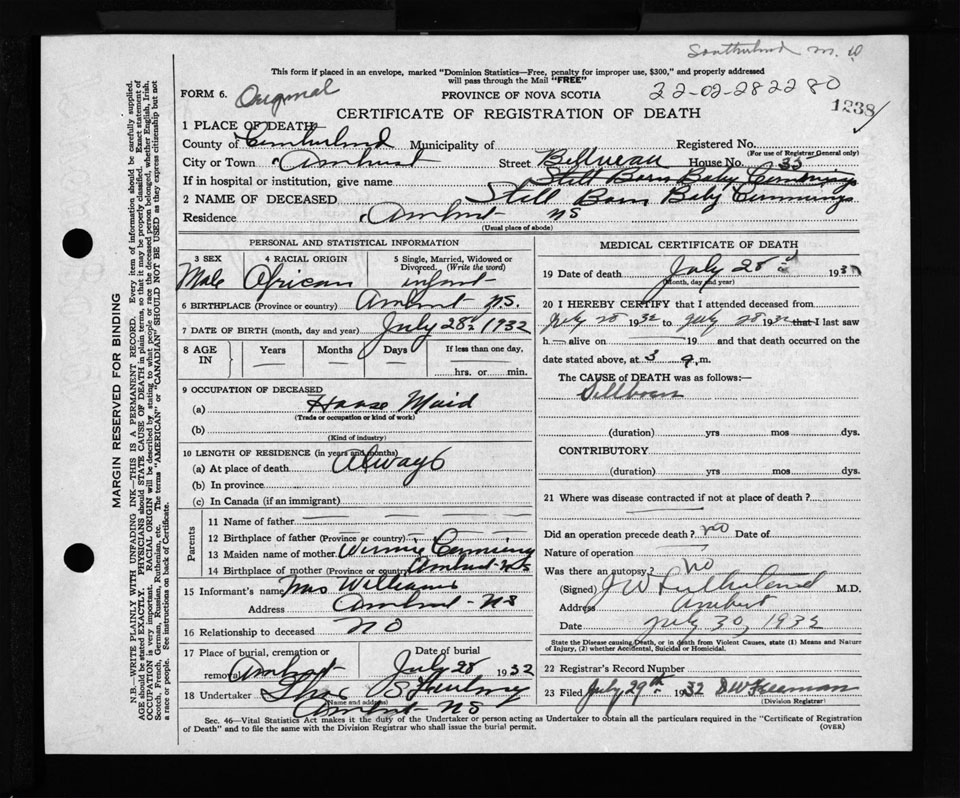 Southerland M. D
This form if placed in an envelope, marked "Dominion Statistics—Free, penalty for improper use, $300," and properly addressed
will pass through the Mail "FREE"
FORM 6. Original PROVINCE OF NOVA SCOTIA 22-02-282280
CERTIFICATE OF REGISTRATION OF DEATH 1238
1 PLACE OF DEATH—
County of Cumberland Municipality of Registered No.
(For use of Registrar General only)
City or Town Amherst Street House No. 35
If in hospital or institution, give name Still Born Baby Cummings
2 NAME OF DECEASED Still Born Baby Cummings
Residence Amherst NS
(Usual place of abode)
PERSONAL AND STATISTICAL INFORMATION
3 SEX 4 RACIAL ORIGIN 5 Single, Married, Widowed or
Divorced. (Write the word)
Male African infant
6 BIRTHPLACE (Province or country) Amherst NS.
7 DATE OF BIRTH (month, day and year) July 28 1932
8 AGE IN Years Months Days If less than one day,
hrs. or min.
9 OCCUPATION OF DECEASED
(a) House Maid
(Trade or occupation or kind of work)
(b)
(Kind of industry)
10 LENGTH OF RESIDENCE (in years and months)
(a) At place of death Always
(b) In province
(c) In Canada (if an immigrant)
Parents
11 Name of father
12 Birthplace of father (Province or country)
13 Maiden name of mother
14 Birthplace of mother (Province or country) Amherst-NS
15 Informant's name Mrs Williams
Address Amherst-NS
16 Relationship to deceased NO
17 Place of burial, cremation or Date of burial
removal Amherst July 28 1932
18 Undertaker
(Name and address)
Amherst-NS
MEDICAL CERTIFICATE OF DEATH
19 Date of death July 28 193
(Month, day and year)
20 I HEREBY CERTIFY that I attended deceased from
July 28 1932 to July 28 1932 that I last saw
h alive on 19 and that death occurred on the
date stated above, at 3 a.m.
The CAUSE of DEATH was as follows:—
Stillborn
(duration) yrs mos dys.
CONTRIBUTORY
(duration) yrs mos dys.
21 Where was disease contracted if not at place of death?
Did an operation precede death? no Date of
Nature of operation
Was there an autopsy? No
(Signed) M.D.
Address Amherst
Date July 30, 1932
State the Disease causing Death, or in death from Violent Causes, state (1) Means and Nature
of Injury, (2) whether Accidental, Suicidal or Homicidal.
22 Registrar's Record Number
23 Filed July 29th 1932 DW Freeman
(Division Registrar)
Sec. 46—Vital Statistics Act makes it the duty of the Undertaker or person acting as Undertaker to obtain all the particulars required in the "Certificate of Registration
of Death" and to file the same with the Division Registrar who shall issue the burial permit. (OVER)
MARGIN RESERVED FOR BINDING
N.B.—WRITE PLAINLY WITH UNFADING INK—THIS IS A PERMANENT RECORD. Every item of information should be carefully supplied.
AGE should be stated EXACTLY. PHYSICIANS should STATE CAUSE OF DEATH in plain terms, so that it may be properly classified. Exact statement of
OCCUPATION is very important. RACIAL ORIGIN will be described by stating to what people or race the deceased person belonged, whether English, Irish,
Scotch, French, German, Russian, Ruthenian, etc. The terms "AMERICAN" or "CANADIAN" SHOULD NOT BE USED as they express citizenship but not
a race or people. See instructions on back of Certificate.